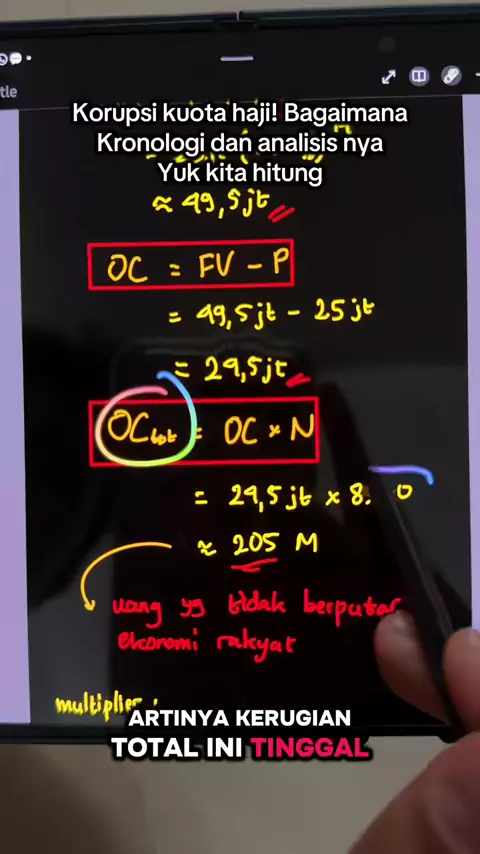 tle
Korupsi kuota haji! Bagaimana
Kronologi dan analisis nya
Yuk kita hitung
≈ 49,5jt
OC = FV - P
= 49,5jt - 25jt
= 24,5jt
OCtot = OC × N
= 24,5jt × 8. 0
≈ 205 M
uang yg tidak berputar
ekonomi rakyat
multiplier :
ARTINYA KERUGIAN
TOTAL INI TINGGAL